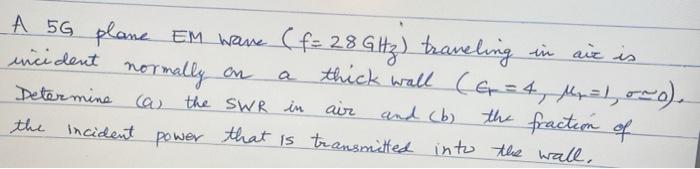 A 5G plane EM wave (f = 28 GHz) traveling in air is
incident normally on a thick wall (εr = 4, μr = 1, σ≃0).
Determine (a) the SWR in air and (b) the fraction of
the incident power that is transmitted into the wall.